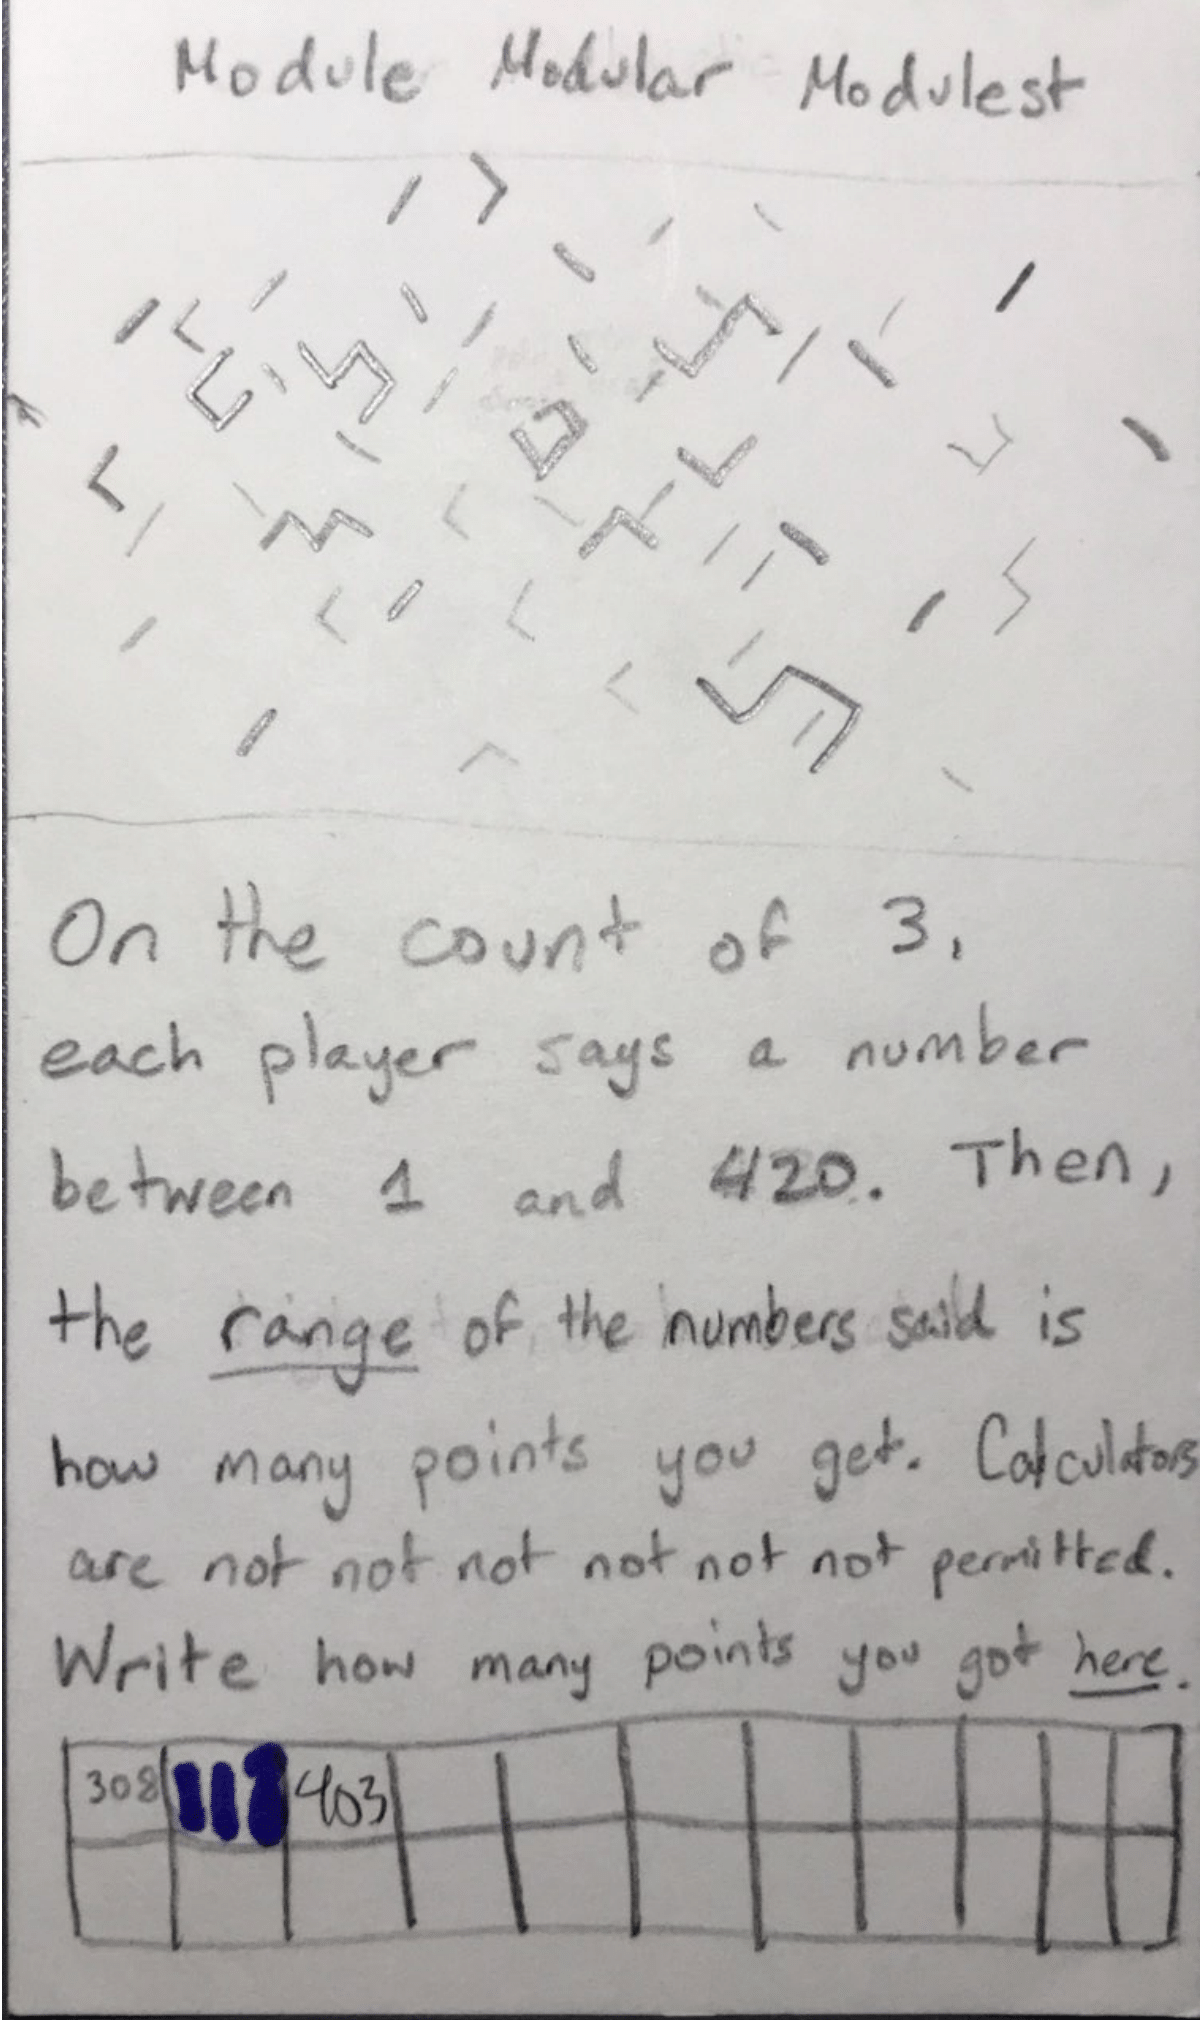 Module Modular Modulest
On the count of 3,
each player says a number
between 1 and 420. Then,
the range of the numbers said is
how many points you get. Calculators
are not not not not not not permitted.
Write how many points you got here.
308 403